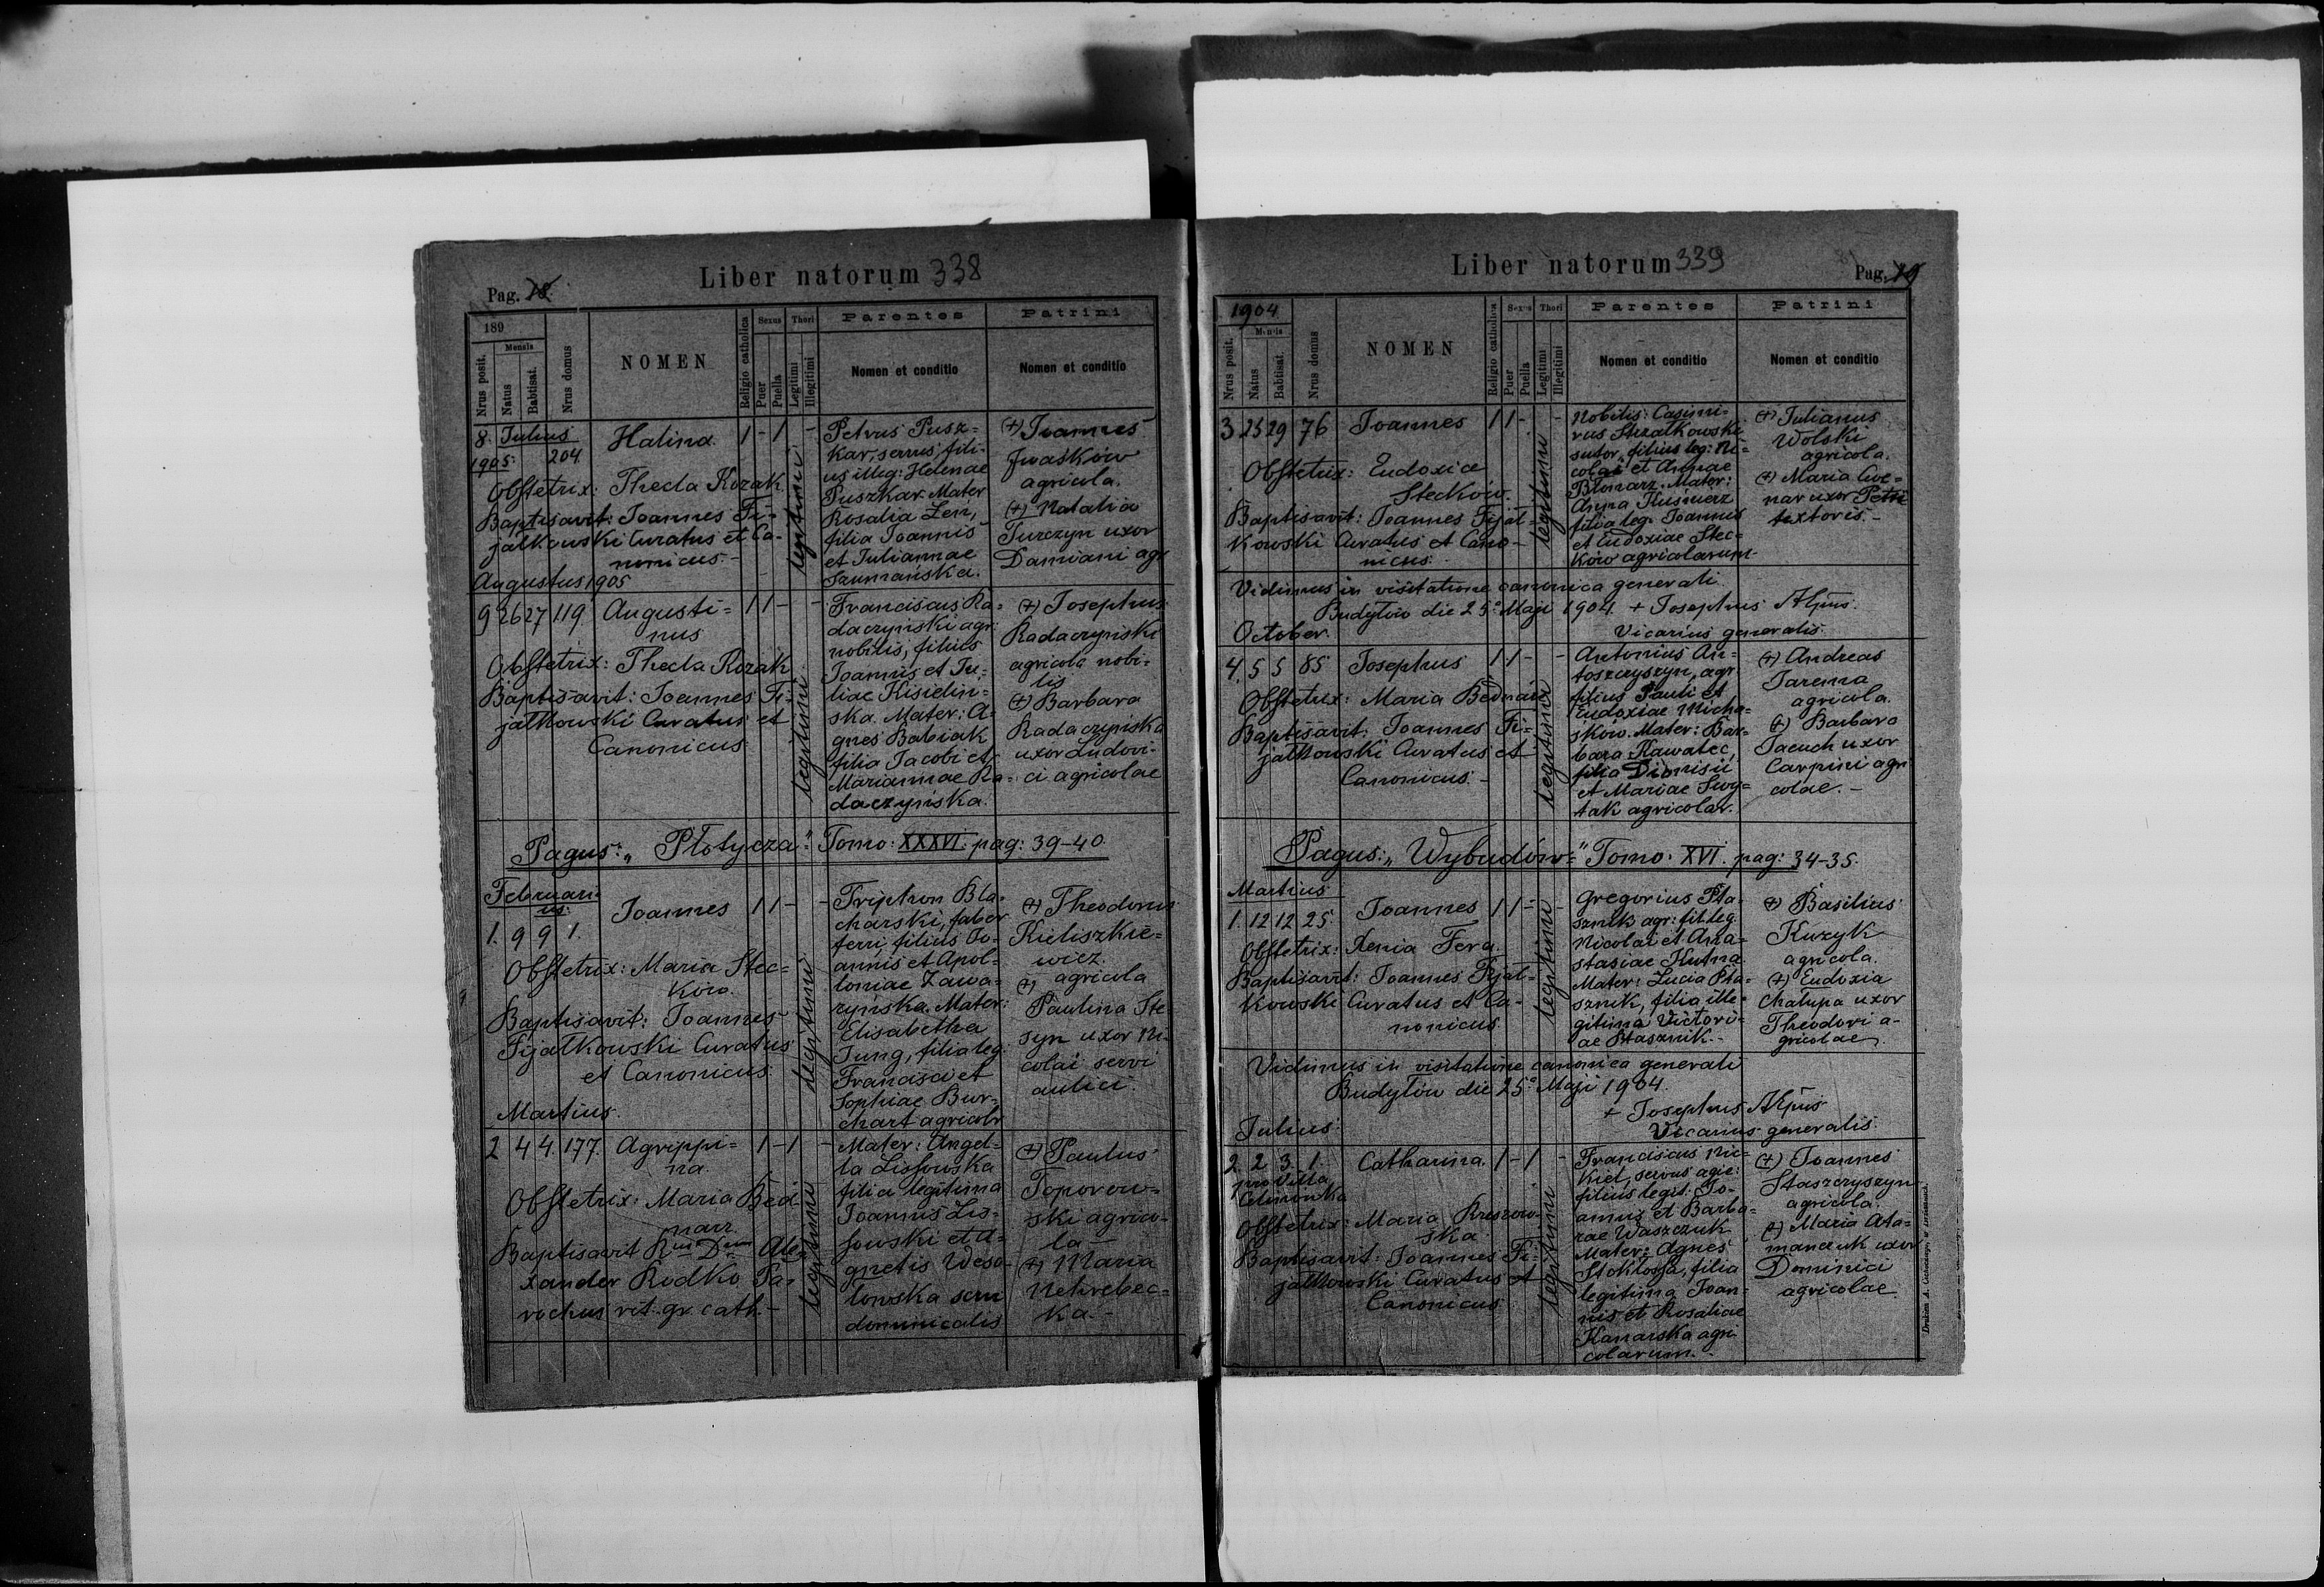 Pag. 18
Liber natorum 338
189
Nrus posit.
Mensis
Natus
Babtisat.
Nrus domus
NOMEN
Religio catholica
Sexus
Puer
Puella
Thori
Legitimi
Illegitimi
Parentes
Nomen et conditio
Patrini
Nomen et conditio
8. Julius
1905. 204
Halina 1 - 1 -
Obstetrix: Thecla Kozak
Baptisavit: Joannes Fi=
jałkowski Curatus et Ca=
nonicus. -
legitimi
Petrus Pusz=
kar, servus, fili=
us illeg: Helenae
Puszkar. Mater
Rosalia Len,
filia Joannis
et Juliannae
Szumańska.
(+) Joannes
Iwasków
agricola.
(+) Natalia
Jurczyn uxor
Damiani agr
Augustus 1905
9 26 27 119 Augusti= 1 1 - -
nus
Obstetrix: Thecla Kozak
Baptisavit: Joannes Fi=
jałkowski Curatus et
Canonicus
legitimi
Franciscus Ra=
daczyński agr:
nobilis, filius
Joannis et Ju=
liae Kisielin=
ska. Mater: A=
gnes Babiak
filia Jacobi et
Mariannae Ra=
daczyńska.
(+) Josephus
Radaczyński
agricola nobi=
lis
(+) Barbara
Radaczyńska
uxor Ludovi=
ci agricolae
Pagus: „Płotycza" Tomo: XXXVI. pag: 39-40.
Februari=
us:
1. 9 9 1.
Joannes 1 1 - -
Obstetrix: Maria Stec=
ków.
Baptisavit: Joannes
Fijałkowski Curatus
et Canonicus.
legitimi
Triphon Bla=
charski, faber
ferri, filius Jo=
annis et Apol=
loniae Zawa=
zyńska. Mater:
Elisabetha
Jung, filia leg.
Francisci et
Sophiae Bur=
chart agricolr
(+) Theodorus
Kieliszkie=
wicz
agricola
(+)
Paulina Ste
syn uxor Ni=
colai servi
aulici.
Martius.
2 4 4. 177. Agrippi= 1 - 1 -
na.
Obstetrix: Maria Bed
narz
Baptisavit Rmus Dnus Ale=
xander Rodko Pa=
rochus rit. gr. cath. -
legitimi
Mater: Angel=
la Lissowska
filia legitima
Joannis Lis=
sowski et A=
gnetis Weso=
łowska
dominicalis
(+) Paulus
Toporow=
ski agrico=
la -
(+) Maria
Nehrebec=
ka. -
Liber natorum 339
Pag. 19
1904
Nrus posit.
Mensis
Natus
Babtisat.
Nrus domus
NOMEN
Religio catholica
Sexus
Puer
Puella
Thori
Legitimi
Illegitimi
Parentes
Nomen et conditio
Patrini
Nomen et conditio
3 23 29 76 Joannes 1 1 - -
Obstetrix: Eudoxia
Steckow.
Baptisavit: Joannes Fijał=
kowski Curatus et Cano=
nicus.
legitimi
Nobilis: Casimi=
rus Strzałkowski
sutor, filius leg: Ni=
colai et Annae
Błonarz. Mater:
Anna Kuśnierz
filia leg. Joannis
et Eudoxiae Stec=
ków agricolarum.
(+) Julianus
Wolski
agricola.
(+) Maria Cve=
nar uxor Petri
textoris. -
Vidimus in visitatione canonica generali
Budyłów die 25° Maji 1904 + Josephus AEpūs.
Vicarius generalis.
October.
4. 5 5 85 Josephus 1 1 - -
Obstetrix: Maria Bednarz
Baptisavit: Joannes Fi=
jałkowski Curatus et
Canonicus. -
legitimi
Antonius An=
toszczyszyn, agr.
filius Pauli et
Eudoxiae Micha=
sków. Mater: Bar=
bara Kawalec,
filia Dionisii
et Mariae Swy=
tak agricolar.
(+) Andreas
Jarema
agricola.
(+) Barbara
Jacuch uxor
Carpini agri
colae. -
Pagus: „Wybudów=" Tomo: XVI. pag: 34-35.
Martius
1. 12 12 25. Joannes 1 1 - -
Obstetrix: Xenia Fera.
Baptisavit: Joannes Fijał=
kowski Curatus et Ca=
nonicus
legitimi
Gregorius Pta=
sznik agr: fil. leg.
Nicolai et Ana=
stasiae Kutna
Mater: Lucia Pta=
sznik, filia ille=
gitima Victori=
ae Ptasznik. -
(+) Basilius
Kuzyk
agricola.
(+) Eudoxia
Chałupa uxor
Theodori a-
gricolae.
Vidimus in visitatione canonica generali
Budyłów die 25° Maji 1904.
+ Josephus AEpūs
Vicarius generalis.
Julius.
2. 2 3. 1. Catharina. 1 - 1 -
pro Villa
Obstetrix: Maria Kreszow=
ska
Baptisavit: Joannes Fi=
jałkowski Curatus et
Canonicus
legitimi
Franciscus Nic=
kiel, servus agr:
filius legit: Jo=
annis et Barba=
rae Waszczuk
Mater: Agnes
Stoklossa, filia
legitima Joan=
nis et Rosaliae
Kanarska agri
colarum. -
(+) Joannes
Staszczyszyn
agricola.
(+) Maria Ata=
mańczuk uxor
Dominici
agricolae